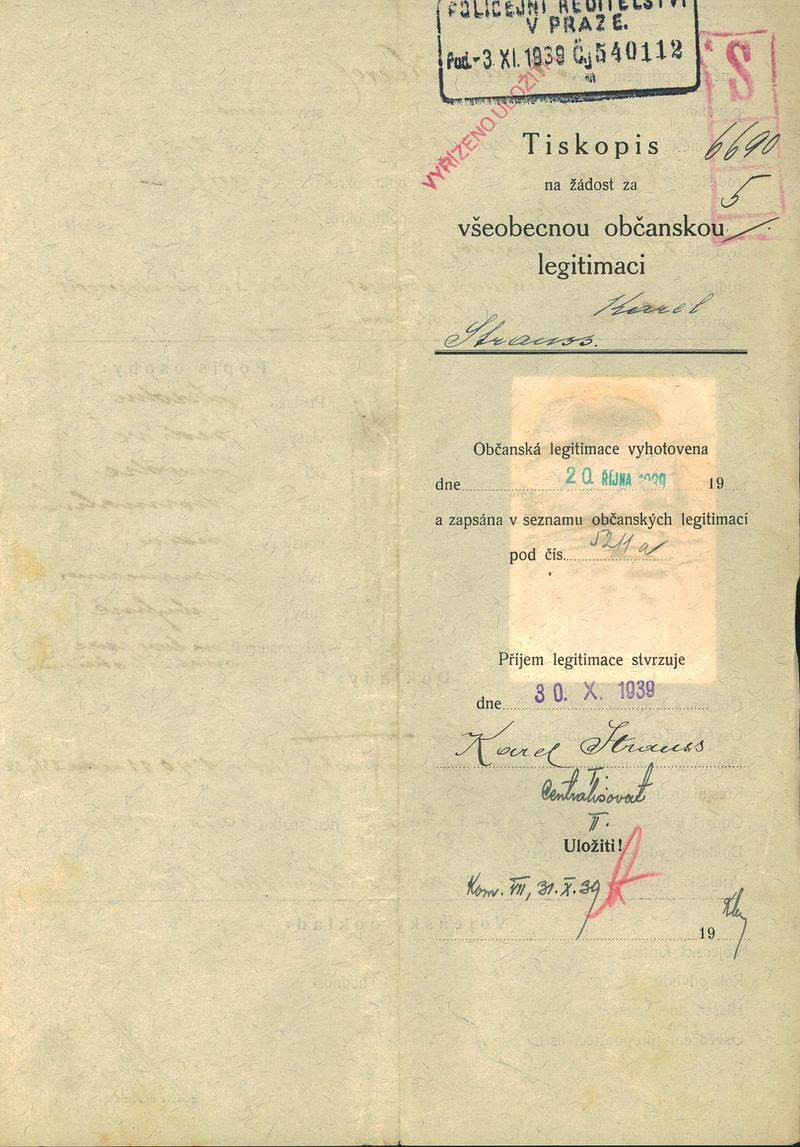 POLICEJNÍ ŘEDITELSTVÍ
V PRAZE.
Pod. -3. XI. 1939 Čj 540112
VYŘÍZENO ULOŽITI
S
Tiskopis
6690
na žádost za
5
všeobecnou občanskou
legitimaci
Karel
Strauss.
Občanská legitimace vyhotovena
dne 20. ŘÍJNA 1939 19
a zapsána v seznamu občanských legitimací
pod čís. 5211a
Příjem legitimace stvrzuje
dne 30. X. 1939
Karel Strauss
I.
Centralisovat
II.
Uložiti!
Kom. VII, 31. X. 39
19